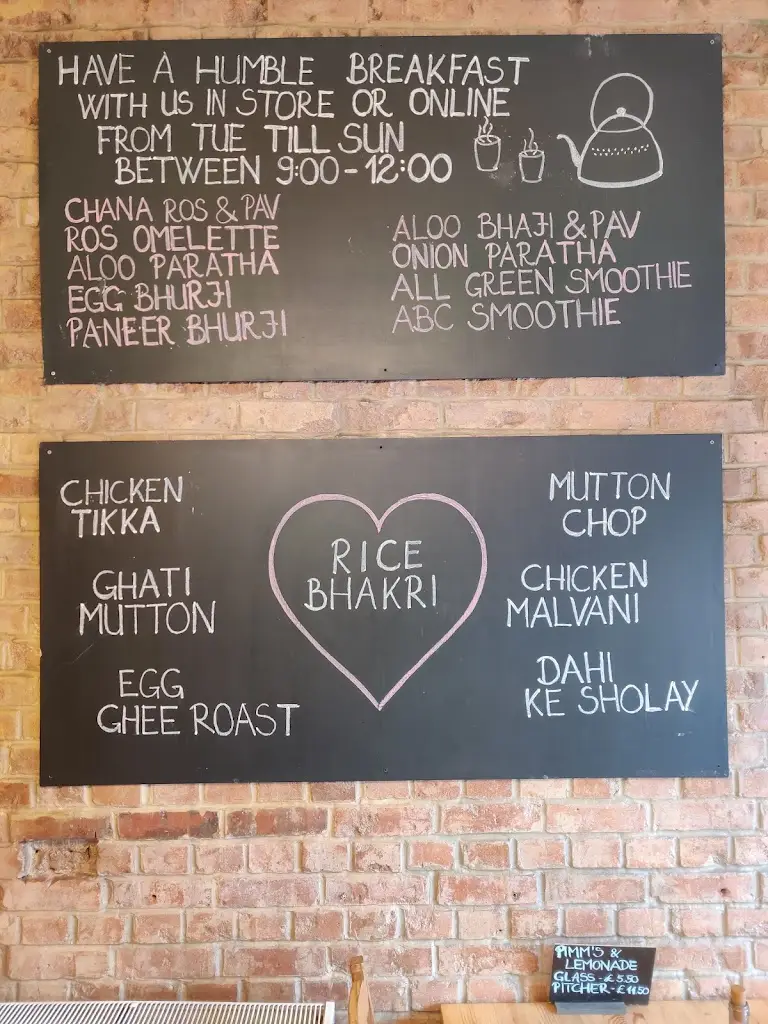 HAVE A HUMBLE BREAKFAST
WITH US IN STORE OR ONLINE
FROM TUE TILL SUN
BETWEEN 9:00-12:00
CHANA ROS & PAV
ROS OMELETTE
ALOO PARATHA
EGG BHURJI
PANEER BHURJI
ALOO BHAJI & PAV
ONION PARATHA
ALL GREEN SMOOTHIE
ABC SMOOTHIE
CHICKEN
TIKKA
GHATI
MUTTON
EGG
GHEE ROAST
RICE
BHAKRI
MUTTON
CHOP
CHICKEN
MALVANI
DAHI
KE SHOLAY
PIMM'S &
LEMONADE
GLASS - £5.50
PITCHER - £11.50